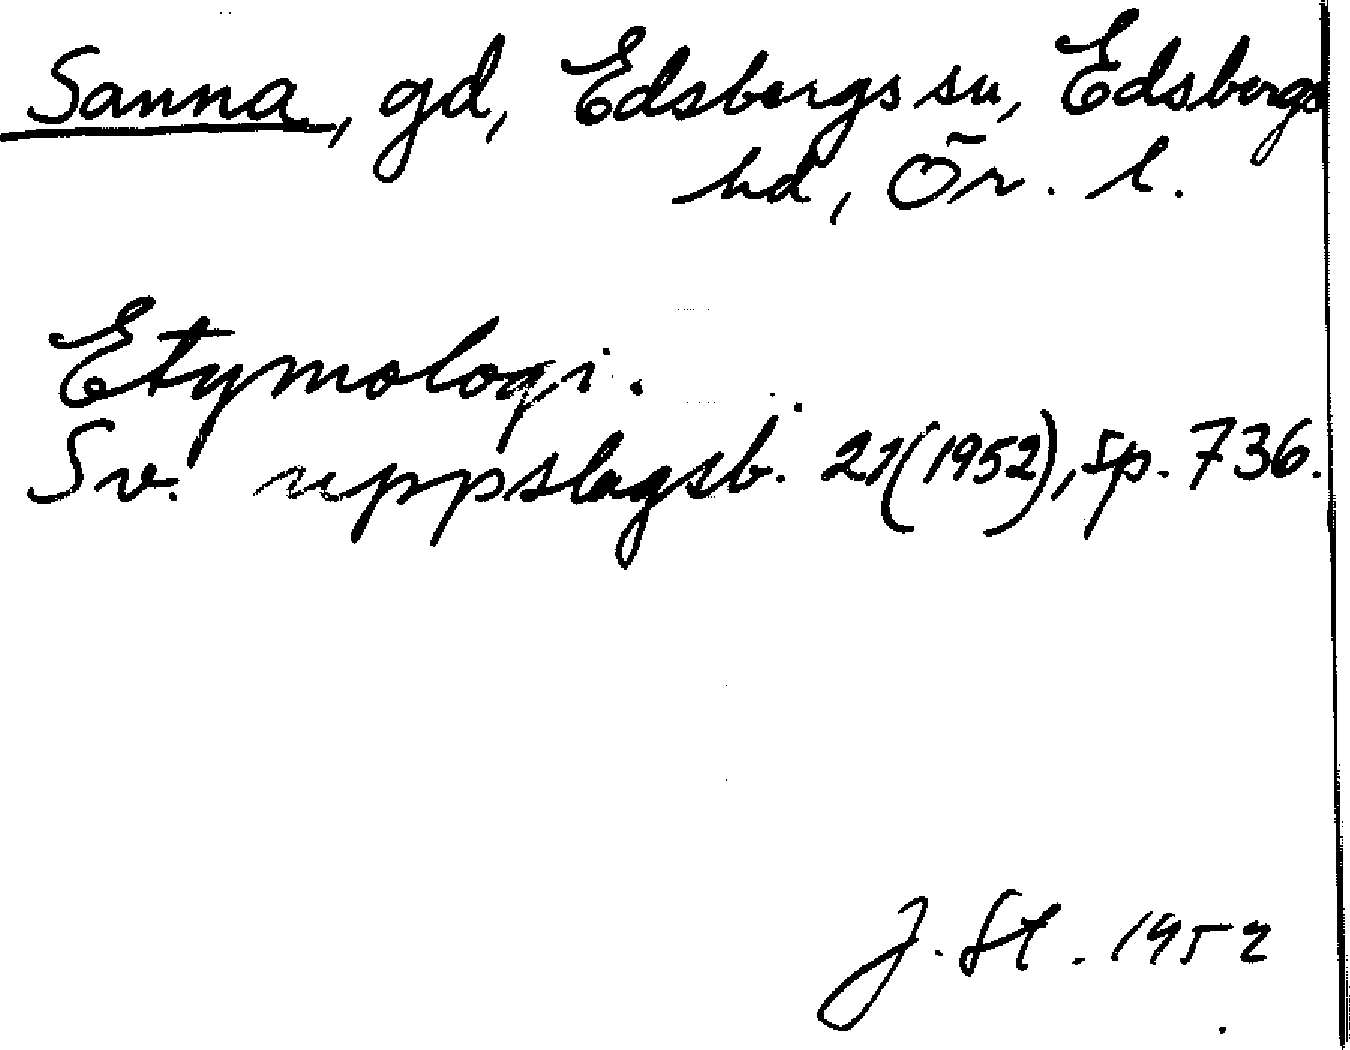 Sanna, gd, Edsbergs sn, Edsbergs
hd, Ör. l.
Etymologi.
Sv. uppslagsb. 21(1952), sp. 736.
J. St. 1952